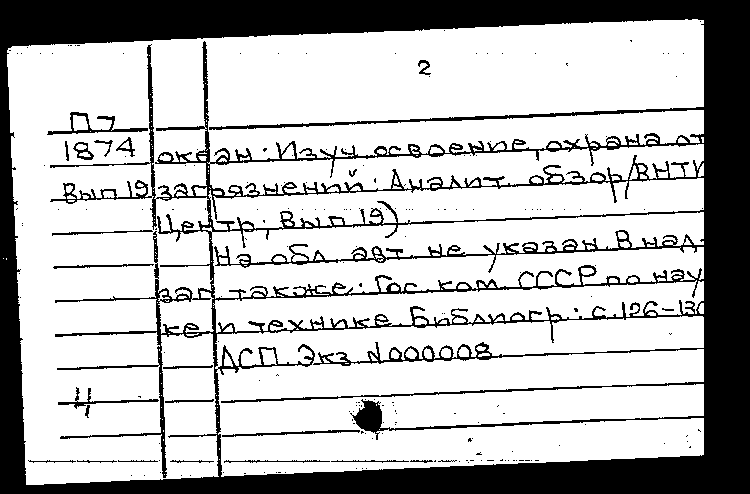 2
П7
1874 океан: Изуч. освоение, охрана от
Вып 19 загрязнений: Аналит. обзор/ВНТИ
Центр; Вып. 19).
На обл. авт. не указан. В над-
заг. также: Гос. ком. СССР по нау
ке и технике. Библиогр: с. 126-130
ДСП. Экз N000008.
Ч